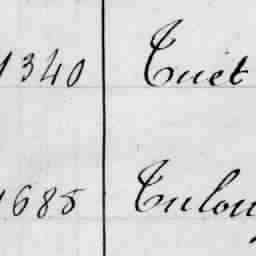 1340 Tuét
1685 Tulou